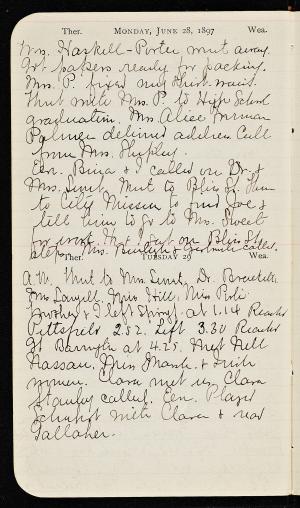 Ther. MONDAY, JUNE 28, 1897 Wea.
Mrs. Haskell-Porter went away.
Got papers ready for packing.
Mrs. P. fixed my shirt-waist.
Went with Mrs. P to High School
graduation. Mrs. Alice Freeman
Palmer delivered address. Call
from Mrs. Shipley.
Eve. & I called on Dr. &
Mrs. Went to Bliss St. then
to City Mission to find Joe &
tell him to go to Mrs. Sweet
for work. on Bliss St
Mrs. & called.
Ther. TUESDAY 29 Wea.
A.M. Went to Mrs. Dr.
Mrs. Miss Hill, Miss
Mother & I left at 1.14 Reached
Pittsfield 2.52. Left 3.30 Reached
Gt. Barrington at 4.25. Met Nell
Nassau, Miss &
women. Clara met us. Clara
Stanley called. Eve. Played
with Clara & read
Gallaher.